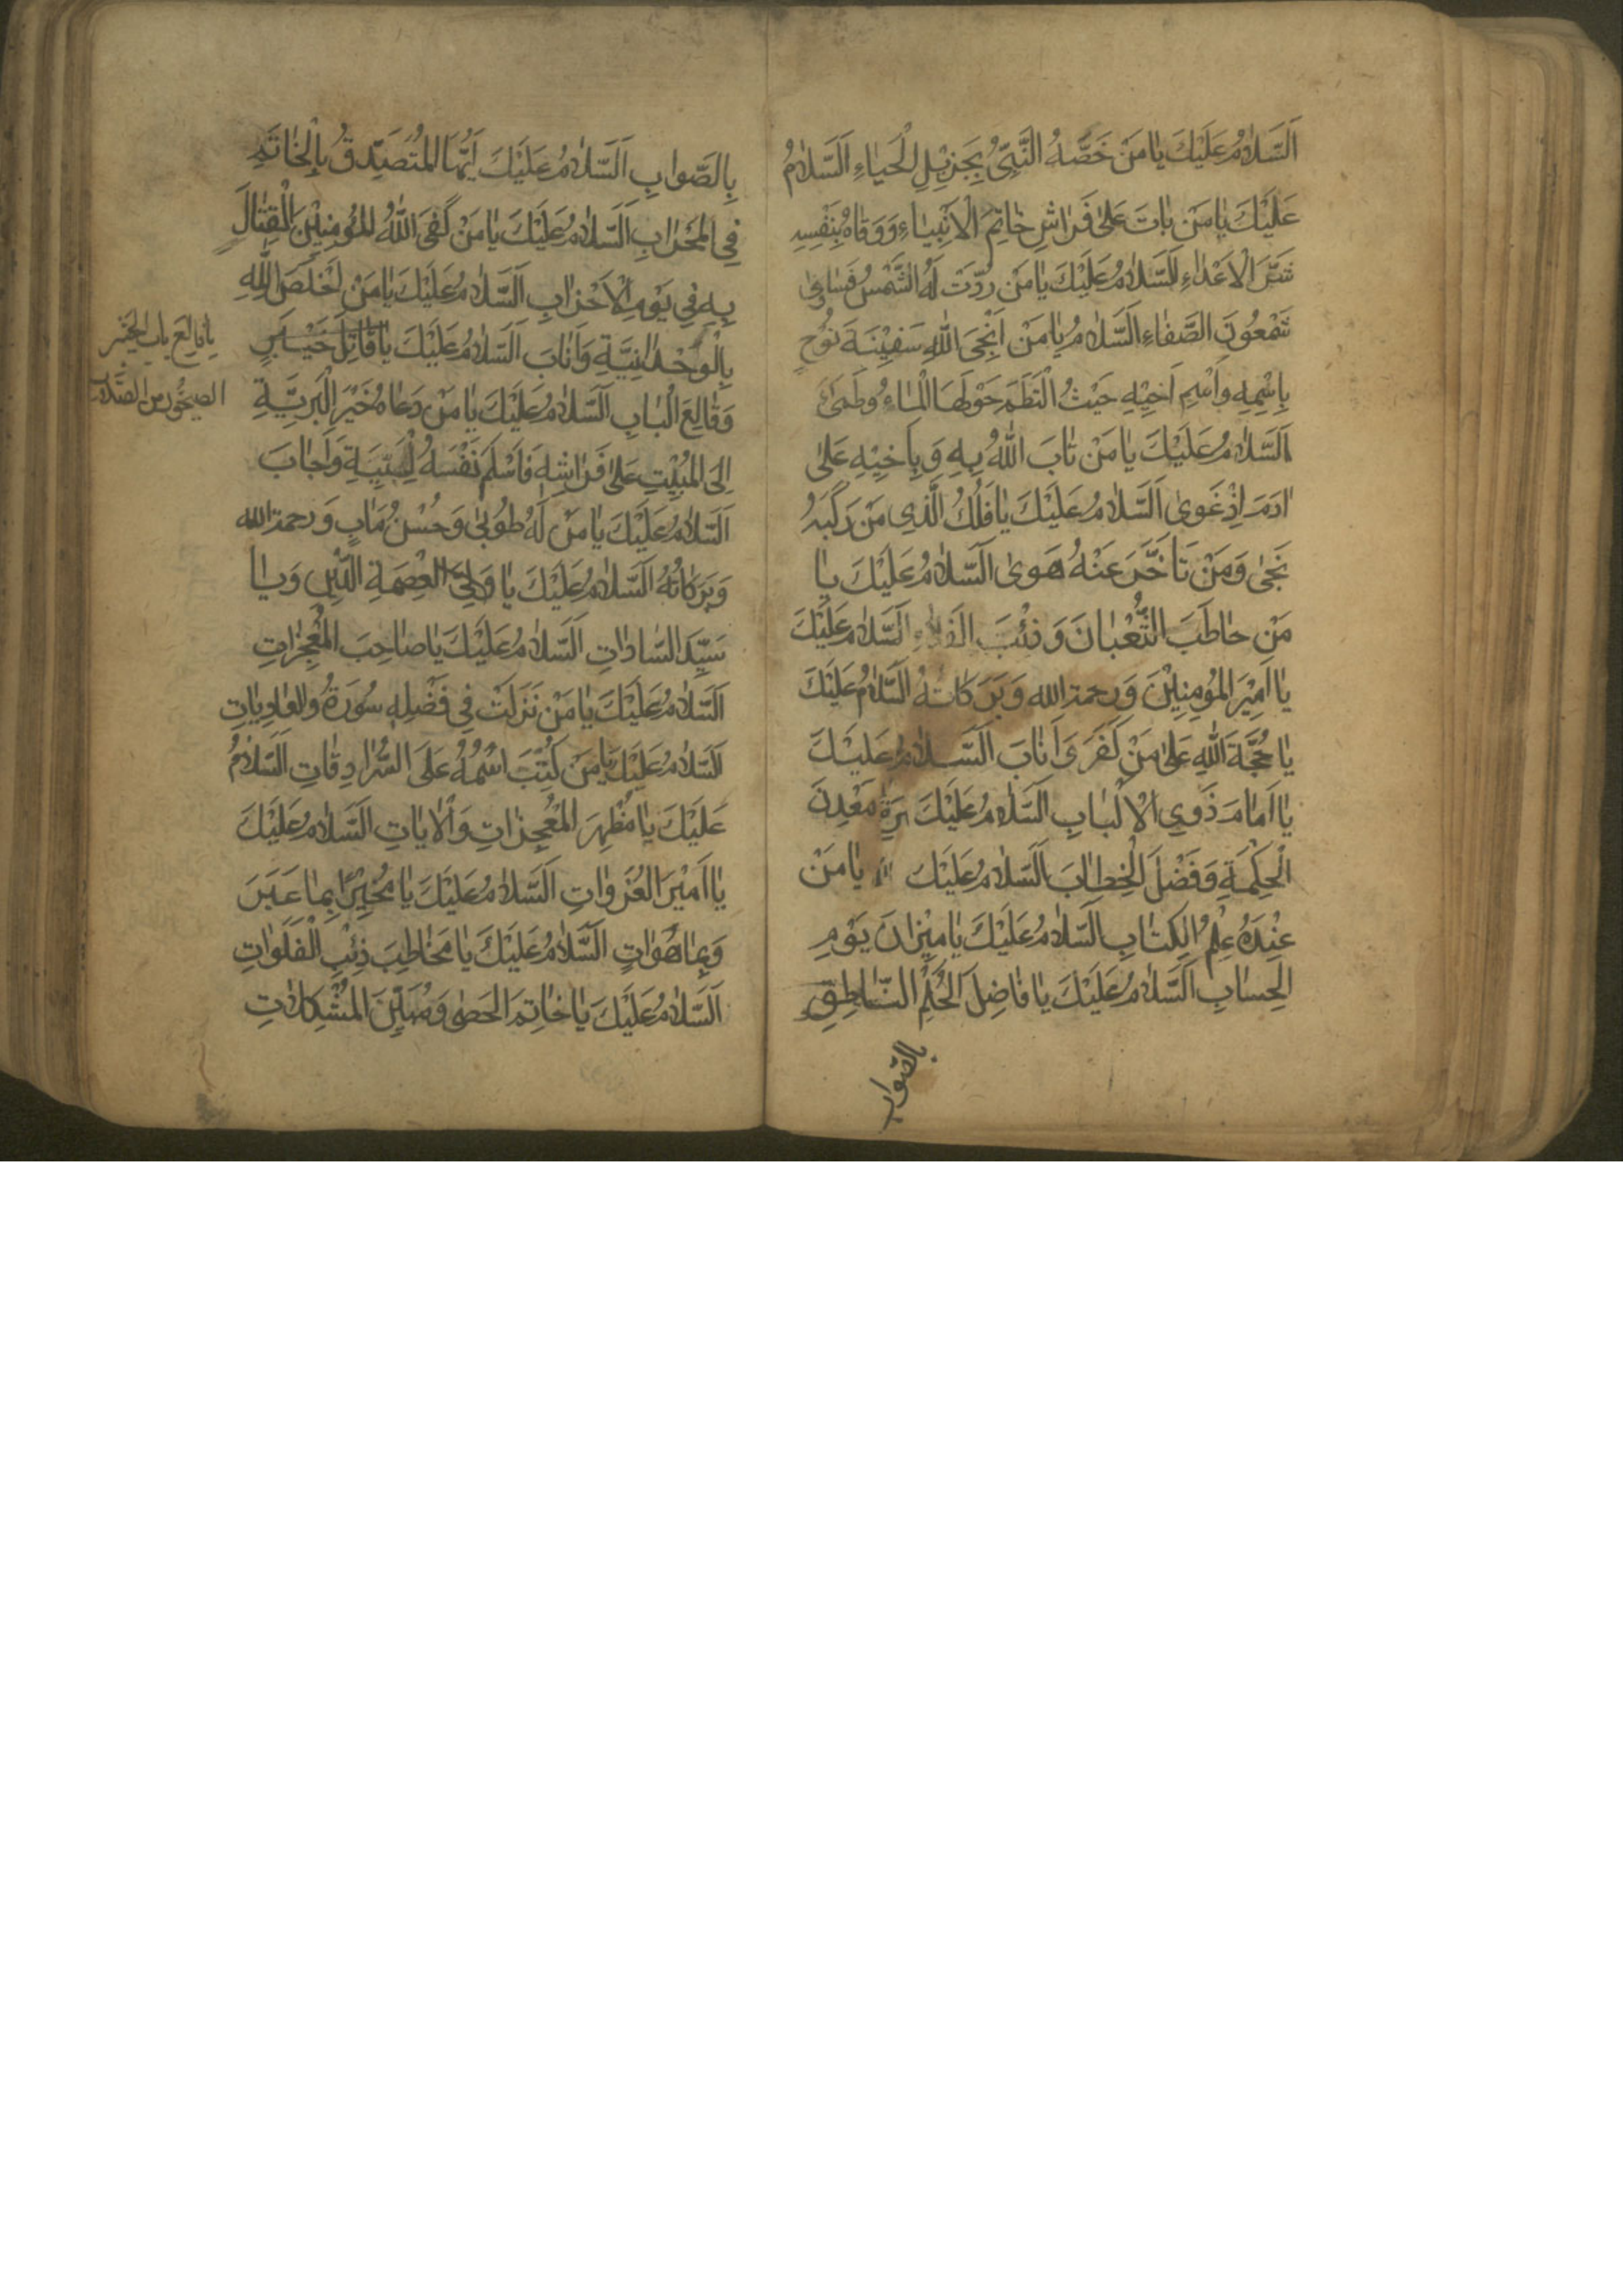 اَلسَّلامُ عَلَيْكَ يا مَنْ خَصَّهُ النَّبِيُّ بِجَزِيْلِ الْحَياءِ اَلسَّلامُ
عَلَيْكَ يا مَنْ باتَ عَلى فَراشِ خاتِمِ الْاَنْبِياءِ وَوَقاهُ بِنَفْسِهِ
شَرَّ الْاَعْداءِ اَلسَّلامُ عَلَيْكَ يا مَنْ رُدَّتْ لَهُ الشَّمْسُ فَساوى
شَمْعُونَ الصَّفاءِ اَلسَّلامُ يا مَنْ اَنْجَى اللهُ سَفِيْنَةَ نُوْحٍ
بِاسْمِهِ وَاسْمِ اَخِيْهِ حَيْثُ الْتَطَمَ حَوْلَهَا الْماءُ وَطَمى
اَلسَّلامُ عَلَيْكَ يا مَنْ تابَ اللهُ بِهِ وَبِاَخِيْهِ عَلى
ادَمَ اِذْ غَوى اَلسَّلامُ عَلَيْكَ يا فَلَكُ الَّذِي مَنْ رَكِبَهُ
نَجى وَمَنْ تَاَخَّرَ عَنْهُ هَوى اَلسَّلامُ عَلَيْكَ يا
مَنْ خاطَبَ الثُّعْبانَ وَذِئْبَ الفَلاءِ اَلسَّلامُ عَلَيْكَ
يا اَمِيْرَ المُؤمِنِيْنَ وَرحمة الله وَبَرَكاتُهُ اَلسَّلامُ عَلَيْكَ
يا حُجَّةَ اللهِ عَلى مَنْ كَفَرَ وَاَنابَ اَلسَّلامُ عَلَيْكَ
يا اَمامَ ذَوِي الْاَلْبابِ اَلسَّلامُ عَلَيْكَ مَعْدِنَ
الْحِكْمَةِ وَفَضْلَ الْخِطابَ اَلسَّلامُ عَلَيْكَ يا مَنْ
عِنْدَهُ عِلْمُ الكِتابِ اَلسَّلامُ عَلَيْكَ يا مِيْزانَ يَوْمِ
الحِسابِ اَلسَّلامُ عَلَيْكَ يا فاضِلَ الحُكْمِ النّاطِقِ
بالصّواب
بِالصَّوابِ اَلسَّلامُ عَلَيْكَ اَيُّهَا المُتَصَدِّقُ بِالْخاتَمِ
فِي المِحْرابِ اَلسَّلامُ عَلَيْكَ يا مَنْ كَفَى اللهُ المُؤمِنِيْنَ الْقِتالَ
بِهِ فِي يَوْمِ الْاَحْزابِ اَلسَّلامُ عَلَيْكَ يا مَنْ اَخْلَصَ لِلّهِ
بِالْوَحْدانِيَّةِ وَاَنابَ اَلسَّلامُ عَلَيْكَ يا قاتِلَ خَيْبَرٍ
وَقالِعَ الْبابِ اَلسَّلامُ عَلَيْكَ يا مَنْ دَعاهُ خَيْرُ الْبَرِيَّةِ
اِلَى المَبِيْتِ عَلى فَراشِهِ فَاَسْلَمَ نَفْسَهُ وَاَجابَ
اَلسَّلامُ عَلَيْكَ يا مَنْ لَهُ طُوْبى وَحُسْنُ مَابٍ وَرحمة الله
وَبَرَكاتُهُ اَلسَّلامُ عَلَيْكَ يا وَلِيَّ العِصْمَةِ الدِّيْنِ وَيا
سَيِّدَ السّاداتِ اَلسَّلامُ عَلَيْكَ يا صاحِبَ المُعْجِزاتِ
اَلسَّلامُ عَلَيْكَ يا مَنْ نَزَلَتْ فِي فَضْلِهِ سُوْرَةُ والعادِياتِ
اَلسَّلامُ عَلَيْكَ يا مَنْ كُتِبَ اسْمُهُ عَلَى السُّرادِقاتِ اَلسَّلامُ
عَلَيْكَ يا مُظْهِرَ المُعْجِزاتِ وَالْاياتِ اَلسَّلامُ عَلَيْكَ
يا اَمِيْرَ الغَزَواتِ اَلسَّلامُ عَلَيْكَ يا مُخْبِرًا بِما غَبَرَ
وَبِما هُوَ اتٍ اَلسَّلامُ عَلَيْكَ يا مُخاطِبَ ذِئْبِ الْفَلَواتِ
اَلسَّلامُ عَلَيْكَ يا خاتِمَ الحَصى وَمُبَيِّنَ المُشْكِلاتِ
يا قالع باب الخيبر